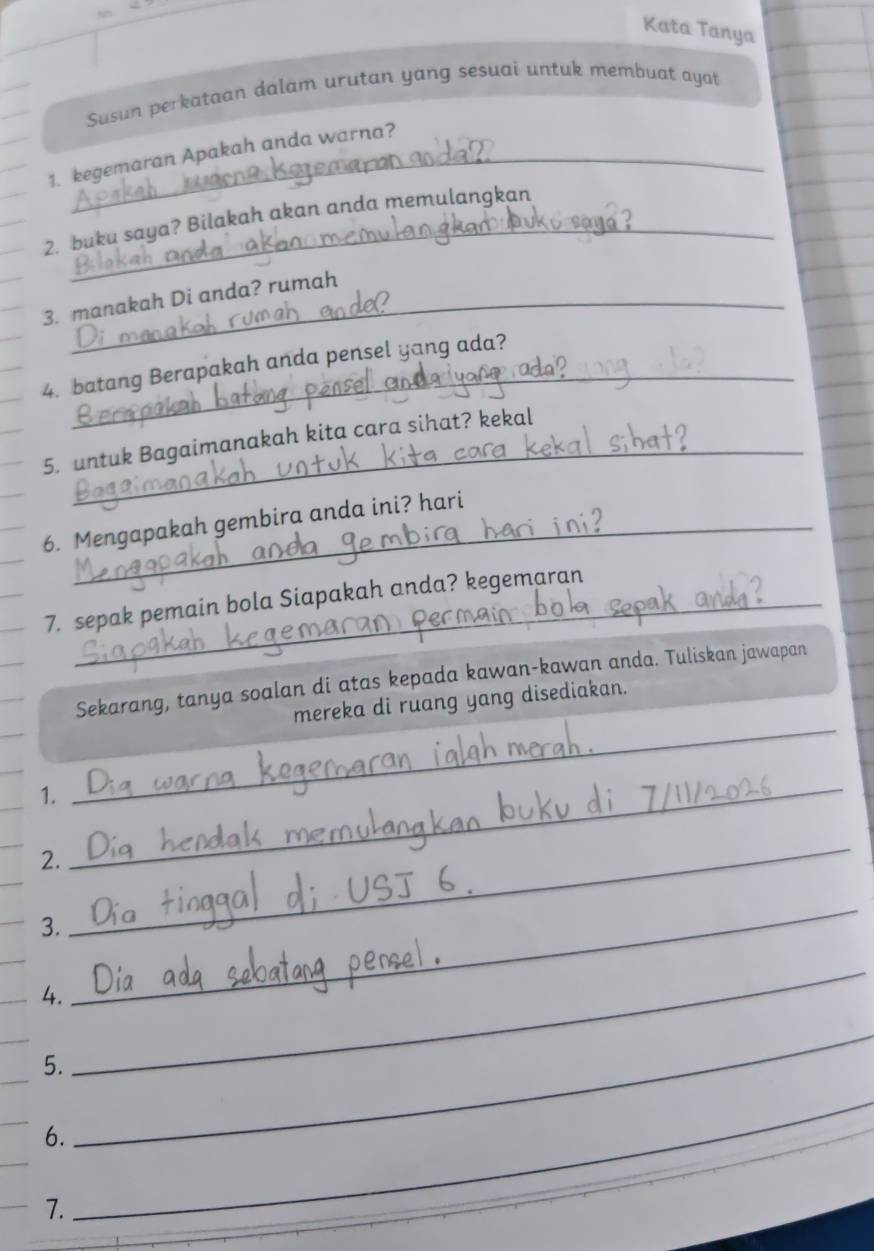 Kata Tanya
Susun perkataan dalam urutan yang sesuai untuk membuat ayat
1. kegemaran Apakah anda warna?
Apakah warna kegemaran anda?
2. buku saya? Bilakah akan anda memulangkan
Bilakah anda akan memulangkan buku saya?
3. manakah Di anda? rumah
Di manakah rumah anda?
4. batang Berapakah anda pensel yang ada?
Berapakah batang pensel anda yang ada?
5. untuk Bagaimanakah kita cara sihat? kekal
Bagaimanakah untuk kita cara kekal sihat?
6. Mengapakah gembira anda ini? hari
Mengapakah anda gembira hari ini?
7. sepak pemain bola Siapakah anda? kegemaran
Siapakah kegemaran permain bola sepak anda?
Sekarang, tanya soalan di atas kepada kawan-kawan anda. Tuliskan jawapan
mereka di ruang yang disediakan.
1. Dia warna kegemaran ialah merah.
2. Dia hendak memulangkan buku di 7/11/2026
3. Dia tinggal di USJ 6.
4. Dia ada sebatang pensel.
5.
6.
7.